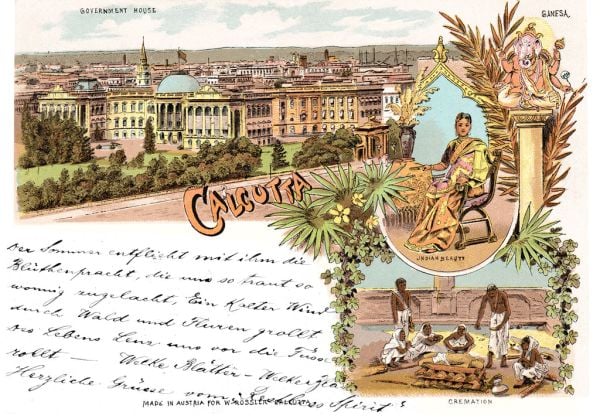 GOVERNMENT HOUSE
GANESA
CALCUTTA
INDIAN BEAUTY
Der Sommer entflieht mit ihm die
Blüthenpracht, die uns so traut so
wonnig zugelacht, Ein Kalter Wind
durch Wald und Fluren grollt
des Lebens Lenz uns vor die Füsse
rollt — Welke Blätter — Welkes
Herzliche Grüsse vom Spirit"
MADE IN AUSTRIA FOR W. RÖSSLER CALCUTTA
CREMATION